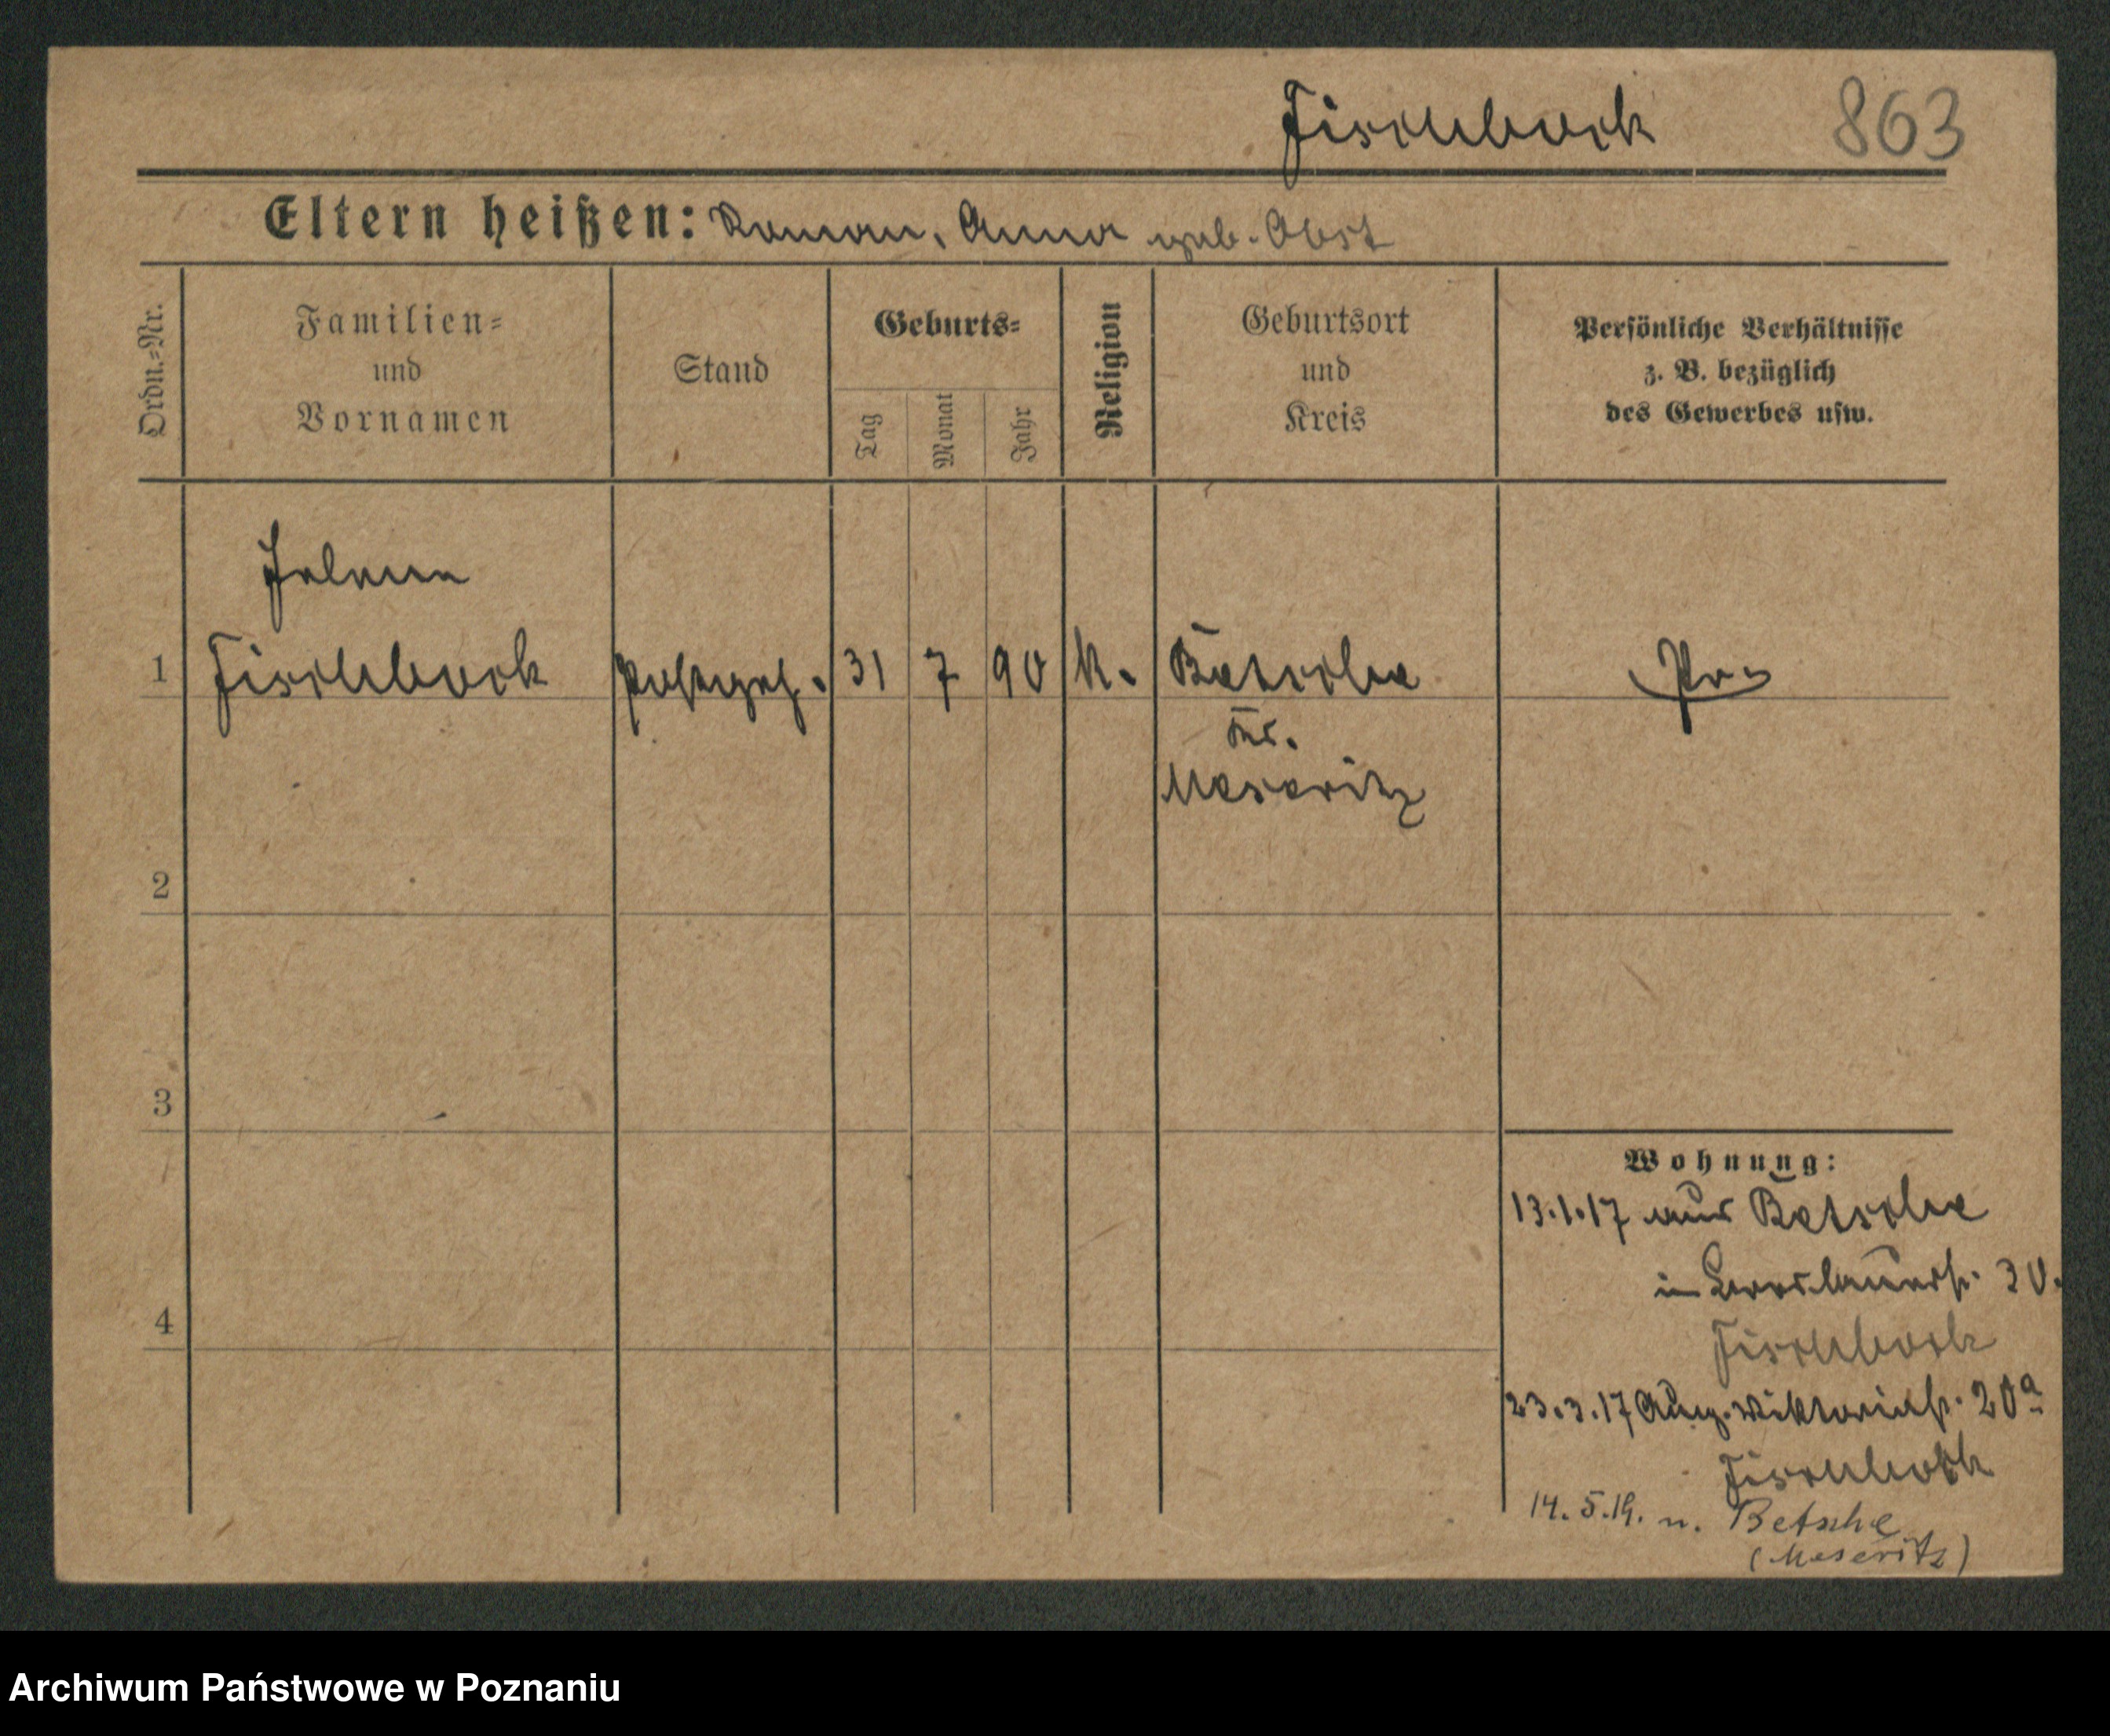 Fischbock 863
Eltern heißen: Roman, Anna geb. Obst
Ordn.=Nr.
Familien=
und
Vornamen
Stand
Geburts=
Tag
Monat
Jahr
Religion
Geburtsort
und
Kreis
Persönliche Verhältnisse
z. B. bezüglich
des Gewerbes usw.
Helena
1 Fischbock Postgeh. 31 7 90 k. Betsche Pr.
Krs.
Meseritz
2
3
4
Wohnung:
13.1.17 aus Betsche
in 30.
Fischbock
23.3.17 Aug. Viktoriastr. 20a
Fischbock
14.5.19. n. Betsche
(Meseritz)
Archiwum Państwowe w Poznaniu